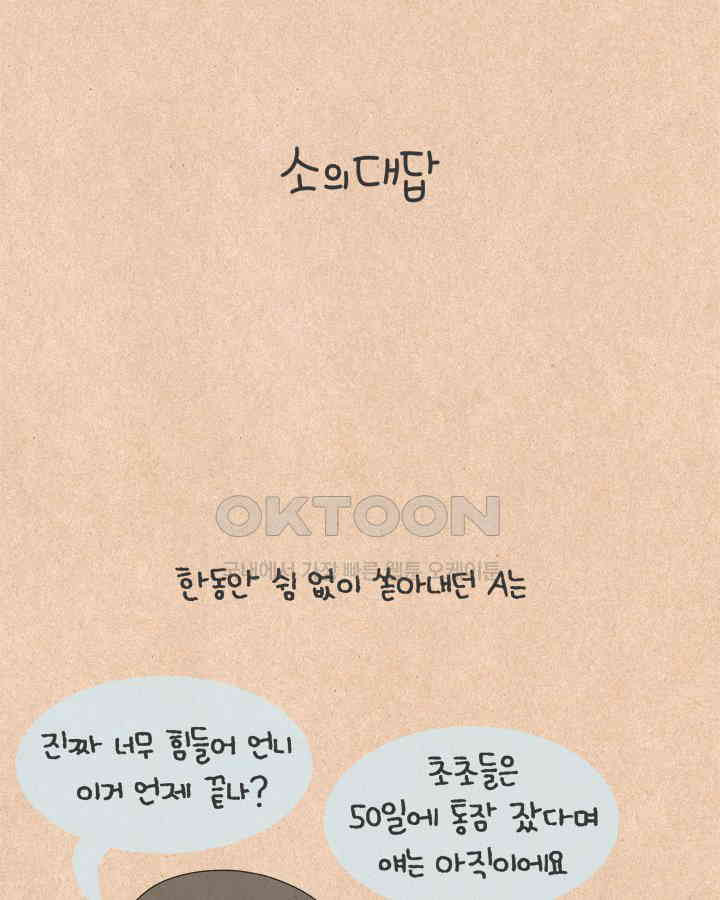 소의대답
OKTOON
국내에서 가장 빠른 웹툰 오케이툰
한동안 쉼 없이 쏟아내던 A는
진짜 너무 힘들어 언니
이거 언제 끝나?
초초들은
50일에 통잠 잤다며
얘는 아직이에요